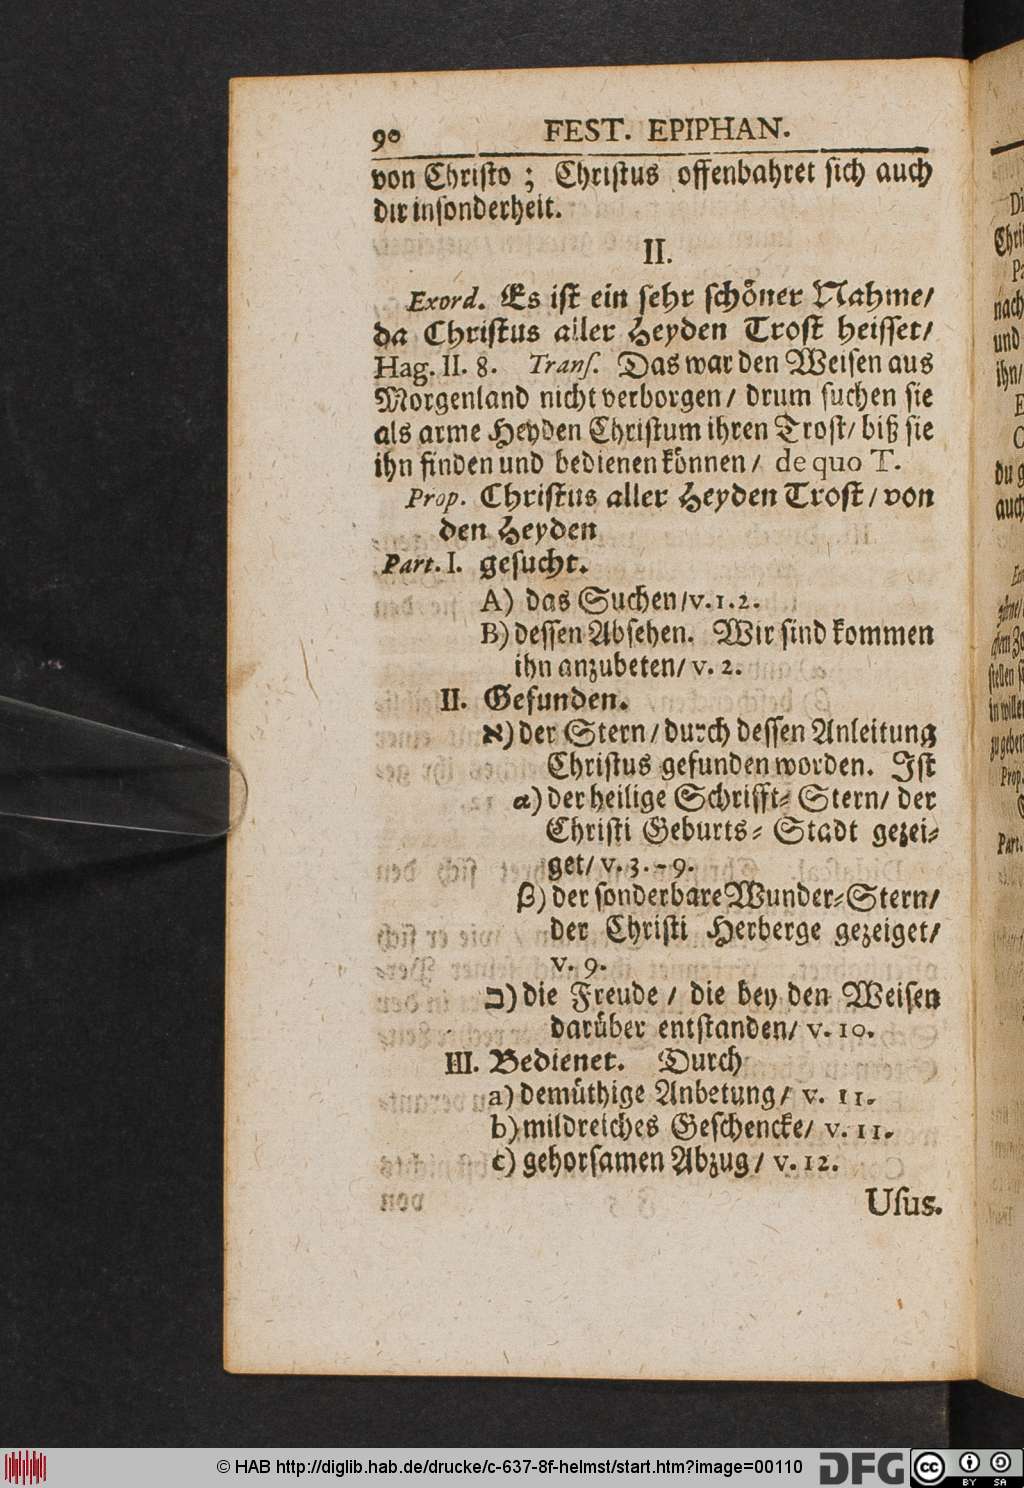 90 FEST. EPIPHAN.
von Christo ; Christus offenbahret sich auch
dir insonderheit.
II.
Exord. Es ist ein sehr schöner Nahme/
da Christus aller Heyden Trost heisset/
Hag. II. 8. Transſ. Das war den Weisen aus
Morgenland nicht verborgen / drum suchen sie
als arme Heyden Christum ihren Trost/ biß sie
ihn finden und bedienen können / de quo T.
Prop. Christus aller Heyden Trost / von
den Heyden
Part. I. gesucht.
A) das Suchen/v.1.2.
B) dessen Absehen. Wir sind kommen
ihn anzubeten/ v. 2.
II. Gefunden.
א) der Stern / durch dessen Anleitung
Christus gefunden worden. Ist
α) der heilige Schrifft⸗ Stern/ der
Christi Geburts⸗ Stadt gezei⸗
get/ v. 3. - 9.
β) der sonderbare Wunder⸗Stern/
der Christi Herberge gezeiget/
v. 9.
ב) die Freude / die bey den Weisen
darüber entstanden/ v. 10.
III. Bedienet. Durch
a) demüthige Anbetung/ v. 11.
b) mildreiches Geschencke/ v. 11.
c) gehorsamen Abzug / v. 12.
Uſus.
© HAB http://diglib.hab.de/drucke/c-637-8f-helmst/start.htm?image=00110
DFG
cc BY SA